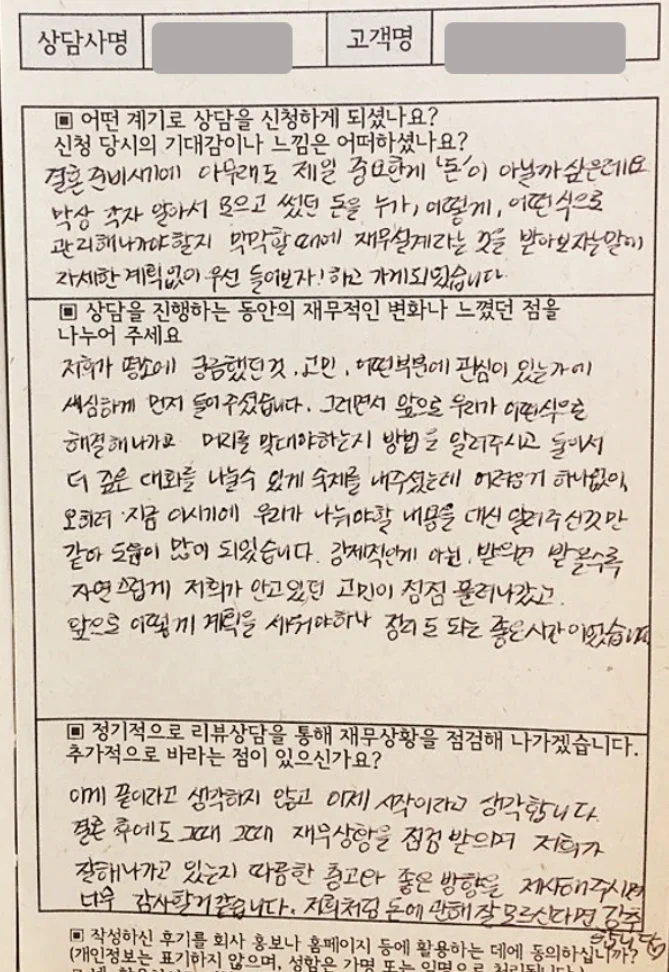 상담사명 고객명
▣ 어떤 계기로 상담을 신청하게 되셨나요?
신청 당시의 기대감이나 느낌은 어떠하셨나요?
결혼 준비시기에 아무래도 제일 중요한게 '돈'이 아닐까 싶은데요
막상 각자 알아서 모으고 썼던 돈을 누가, 어떻게, 어떤식으로
관리해나가야할지 막막할때에 재무설계라는 것을 받아보자는말에
자세한 계획없이 우선 들어보자! 하고 가게되었습니다.
▣ 상담을 진행하는 동안의 재무적인 변화나 느꼈던 점을
나누어 주세요
저희가 평소에 궁금했던것, 고민, 어떤부분에 관심이 있는가에
세심하게 먼저 들어주셨습니다. 그러면서 앞으로 우리가 어떤식으로
해결해나가고 머리를 맞대야하는지 방법을 알려주시고 둘이서
더 깊은 대화를 나눌수 있게 숙제를 내주셨는데 어려운거 하나없이,
오히려 지금 이시기에 우리가 나눠야할 내용을 대신 알려주신것만
같아 도움이 많이 되었습니다. 강제적인게 아닌, 받으면 받을수록
자연스럽게 저희가 안고있던 고민이 점점 풀려나갔고
앞으로 어떻게 계획을 세워야하나 정리도 되는 좋은시간이었습니다
▣ 정기적으로 리뷰상담을 통해 재무상황을 점검해 나가겠습니다.
추가적으로 바라는 점이 있으신가요?
이게 끝이라고 생각하지 않고 이제 시작이라고 생각합니다.
결혼 후에도 그때 그때 재무상황을 점검 받으며 저희가
잘해나가고 있는지 따끔한 충고와 좋은 방향을 제시해주시면
너무 감사할거같습니다. 저희처럼 돈에 관해 잘 모르신다면 강추
합니당♡
▣ 작성하신 후기를 회사 홍보나 홈페이지 등에 활용하는 데에 동의하십니까?
(개인정보는 표기하지 않으며, 성함은 가명 또는 익명으로 처리됩니다